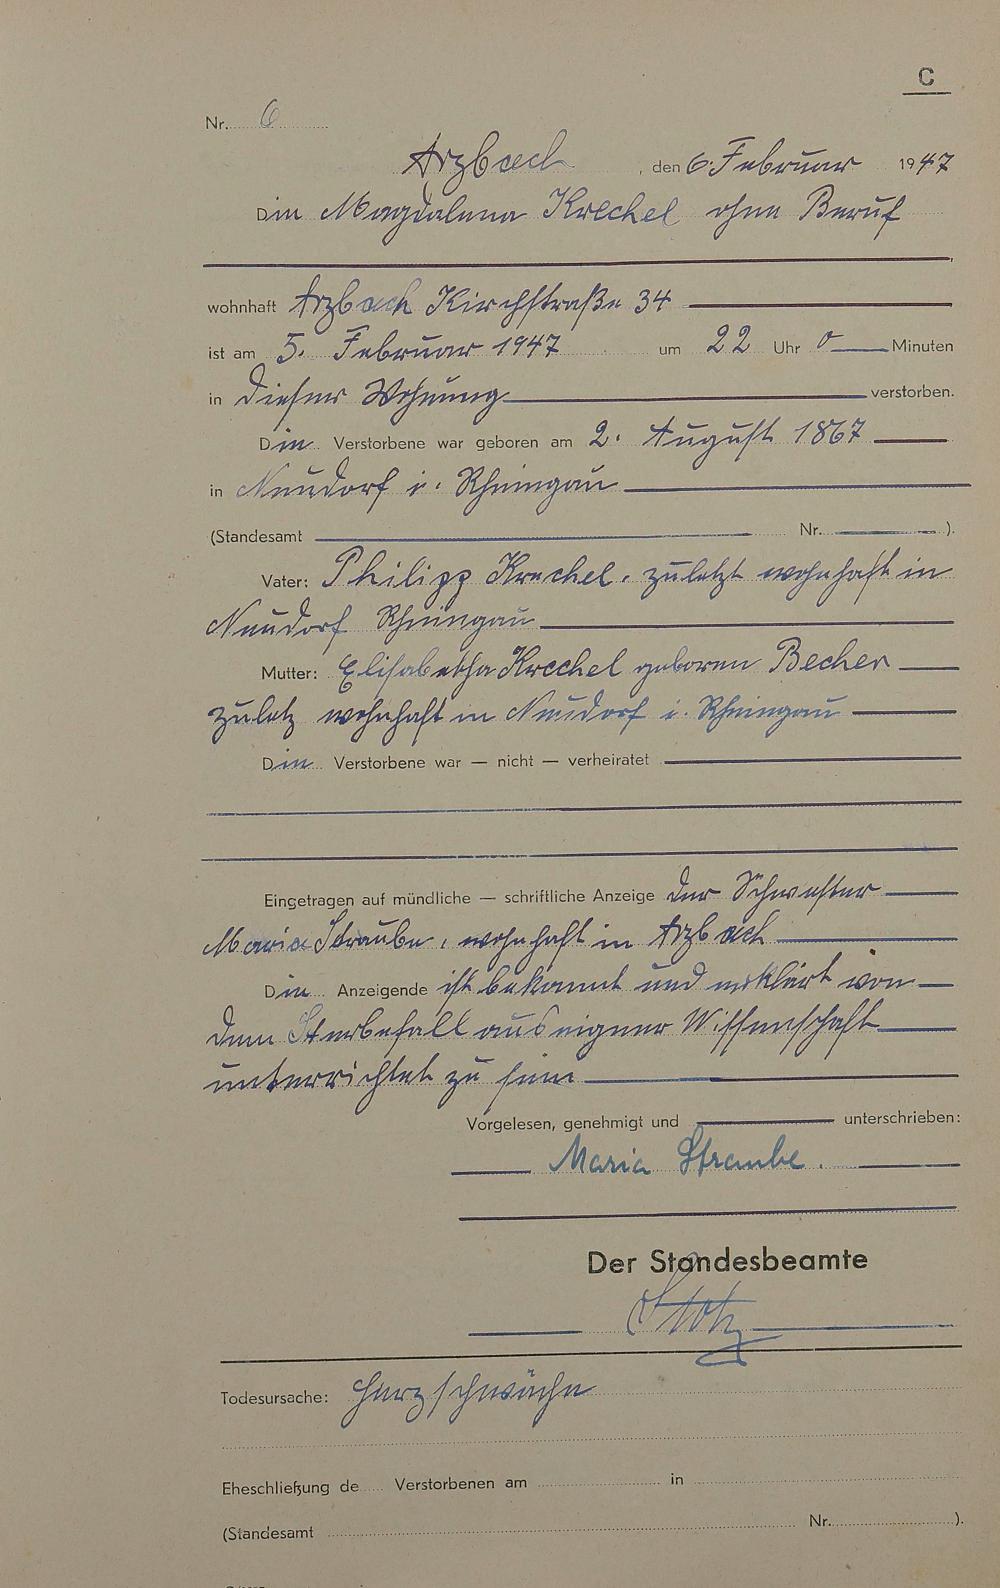 C
Nr. 6
Arzbach, den 6. Februar 1947
Die Magdalena Krechel ohne Beruf
wohnhaft Arzbach Kirchstraße 34
ist am 5. Februar 1947 um 22 Uhr 0 Minuten
in dieser Wohnung verstorben.
Die Verstorbene war geboren am 2. August 1867
in Neudorf i. Rheingau
(Standesamt Nr. ).
Vater: Philipp Krechel, zuletzt wohnhaft in
Neudorf Rheingau
Mutter: Elisabetha Krechel geboren Becher
zuletz wohnhaft in Neudorf i. Rheingau
Die Verstorbene war — nicht — verheiratet
Eingetragen auf mündliche — schriftliche Anzeige der Schwester
Maria Straube, wohnhaft in Arzbach
Die Anzeigende ist bekannt und erklärt von
dem Sterbefall aus eigener Wissenschaft
unterrichtet zu sein
Vorgelesen, genehmigt und unterschrieben:
Maria Straube.
Der Standesbeamte
Todesursache: Herzschwäche
Eheschließung de Verstorbenen am in
(Standesamt Nr. ).